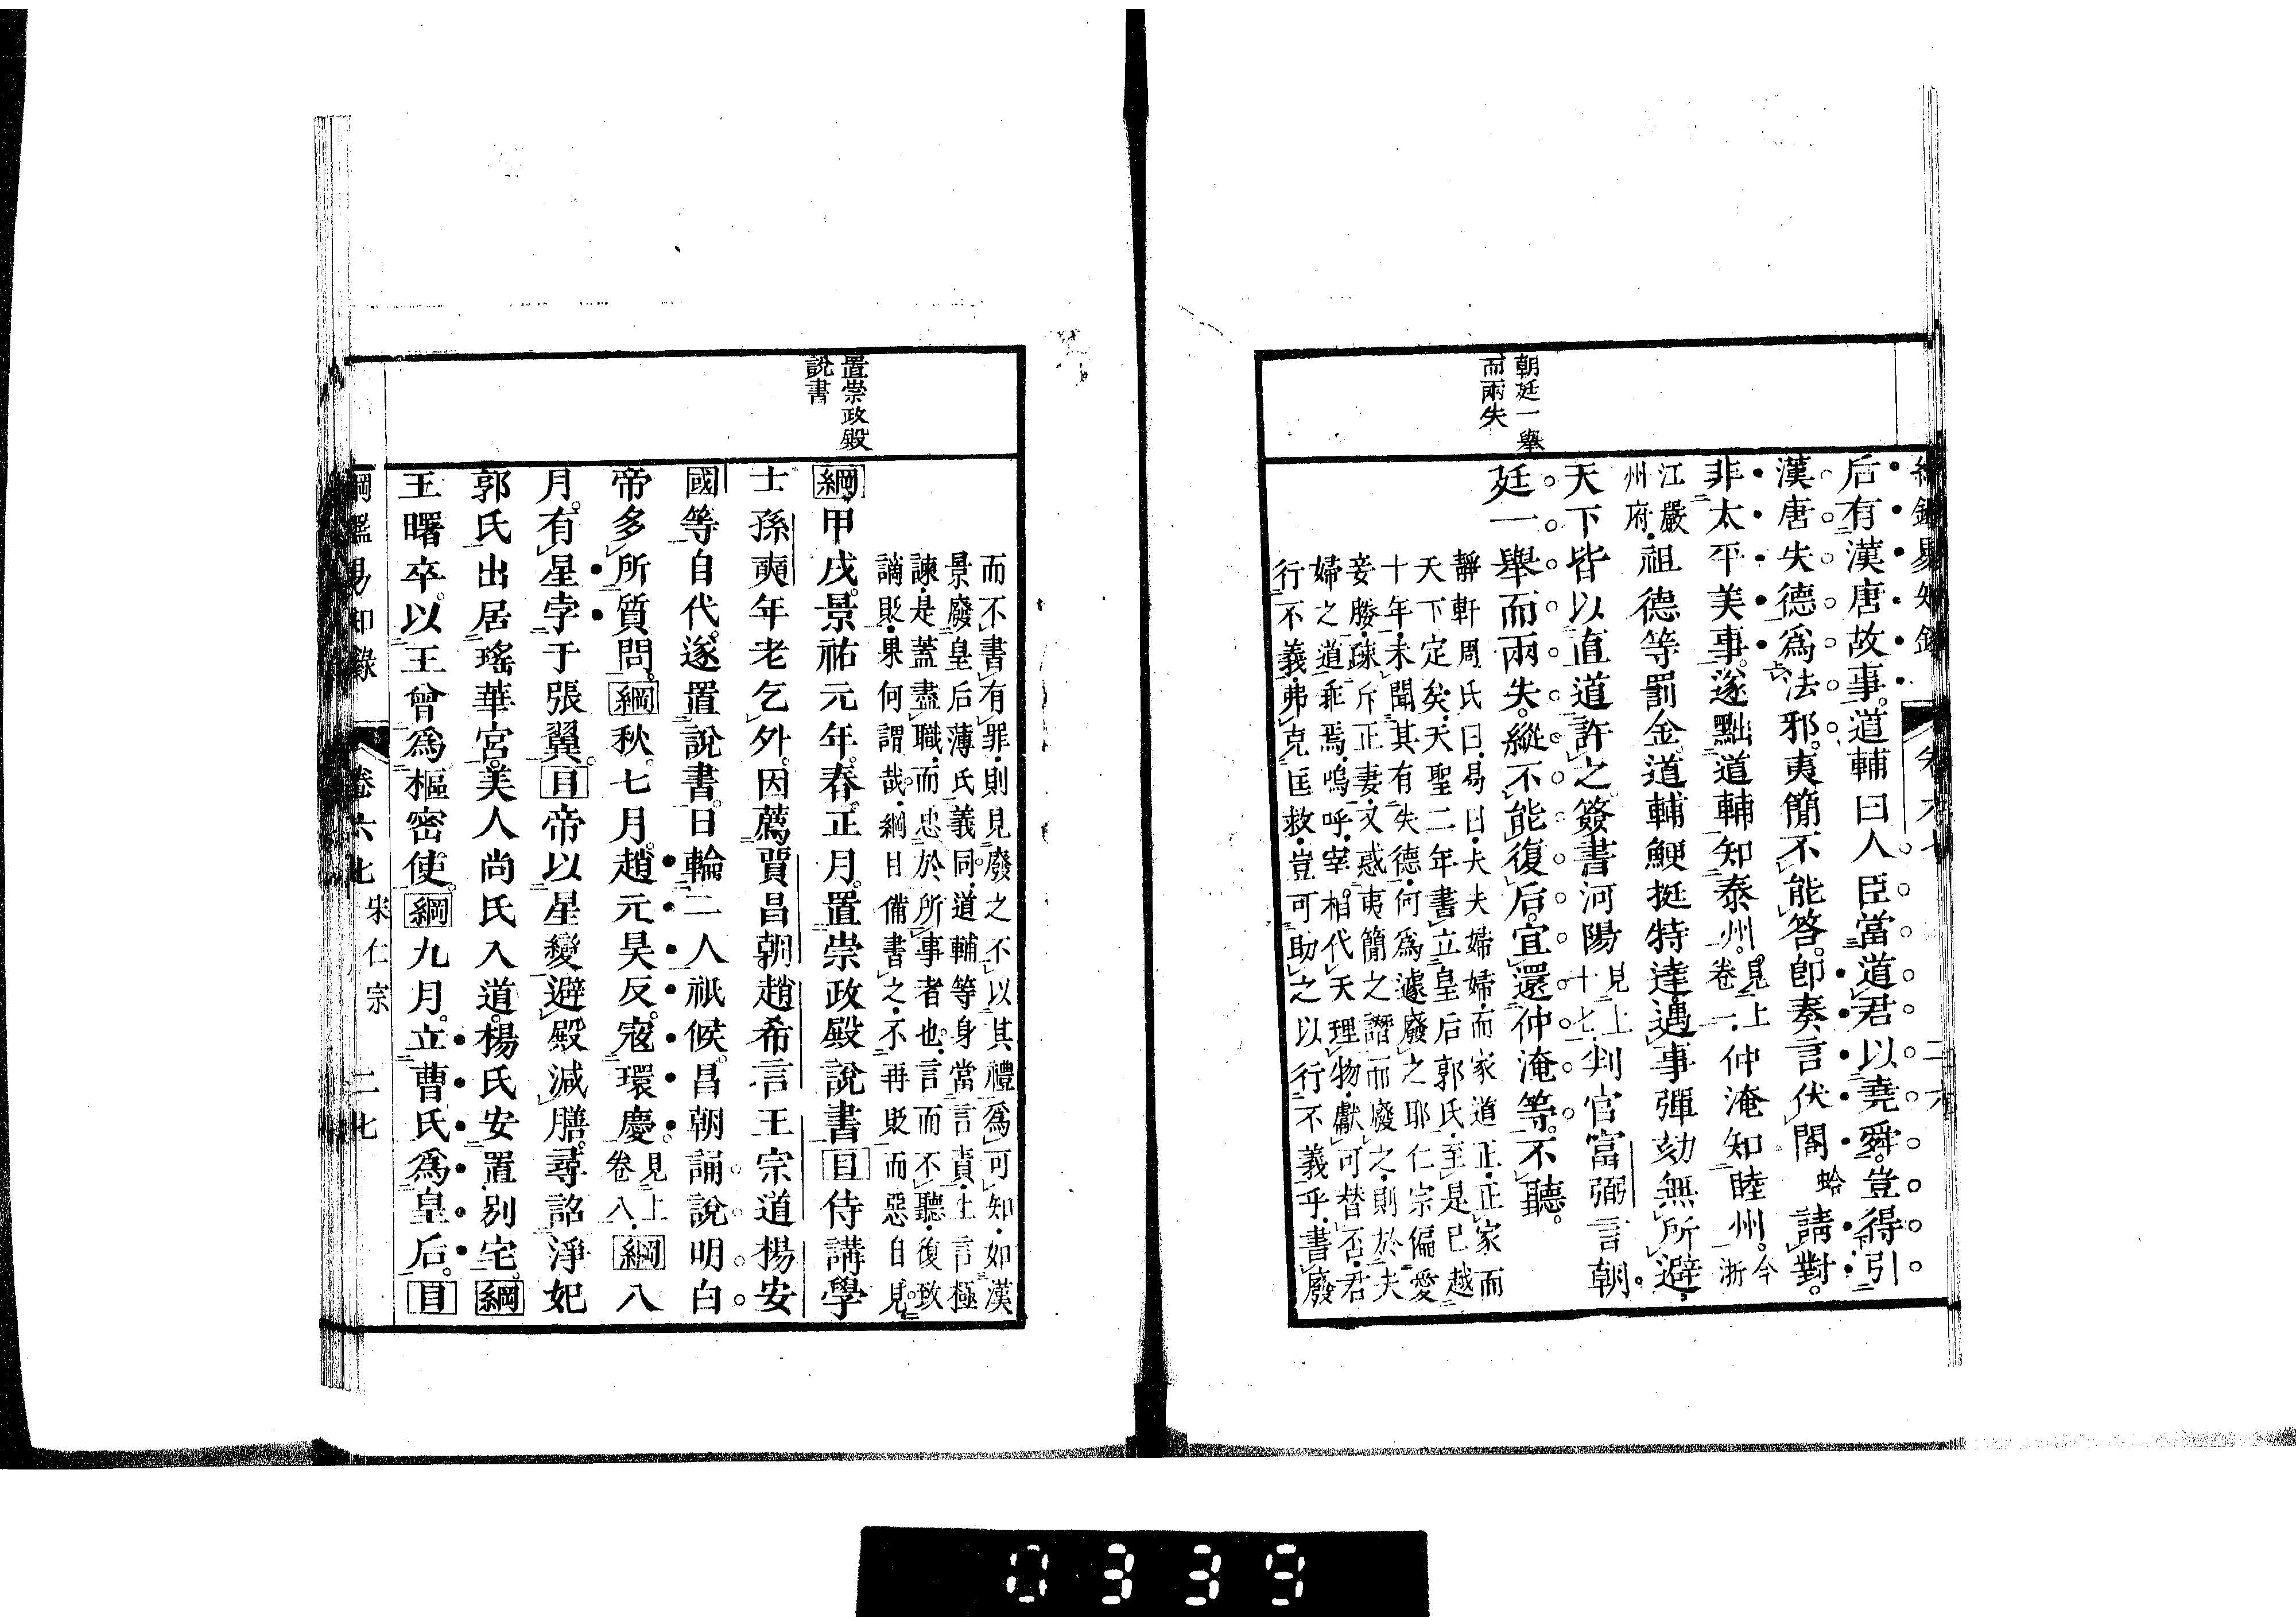 朝廷一舉
而兩失
后有漢唐故事。道輔曰人臣當道君以堯舜。豈得引
漢唐失德爲法邪。夷簡不能答。卽奏言伏閤蛤請對。
非太平美事。遂黜道輔知泰州。見上卷一．仲淹知睦州。今浙
江嚴州府．祖德等罰金。道輔鯁挺特達。遇事彈劾無所避。
天下皆以直道許之簽書河陽見上十七．判官富弼言朝
廷一舉而兩失。縱不能復后。宜還仲淹等。不聽。
靜軒周氏曰．易曰．夫夫婦婦．而家道正．正家而
天下定矣．天聖二年書立皇后郭氏．至是已越
十年．未聞其有失德．何爲遽廢之耶仁宗偏愛
妾媵．疎斥正妻．又惑夷簡之譖而廢之．則於夫
婦之道乖焉．嗚呼．宰相代天理物．獻可替否．君
行不義．弗克匡救．豈可助之以行不義乎．書廢
綱鑑易知錄 卷六七 二六
置崇政殿
說書
而不書有罪．則見廢之不以其禮爲可知．如漢
景廢皇后薄氏義同．道輔等身當言責．上言極
諫．是蓋盡職．而忠於所事者也．言而不聽．復致
謫貶．果何謂哉．綱目備書之．不再貶而惡自見。
綱甲戌。景祐元年。春。正月。置崇政殿說書目侍講學
士孫奭年老乞外。因薦賈昌朝趙希言王宗道楊安
國等自代。遂置說書。日輪二人祇候。昌朝誦說明白
帝多所質問。綱秋。七月。趙元昊反。寇環慶。見上卷八．綱八
月。有星孛于張翼。目帝以星變避殿減膳。尋詔淨妃
郭氏出居瑤華宮。美人尚氏入道。楊氏安置別宅。綱
王曙卒。以王曾爲樞密使。綱九月。立曹氏爲皇后。目
綱鑑易知錄 卷六七 宋仁宗 二七
0339